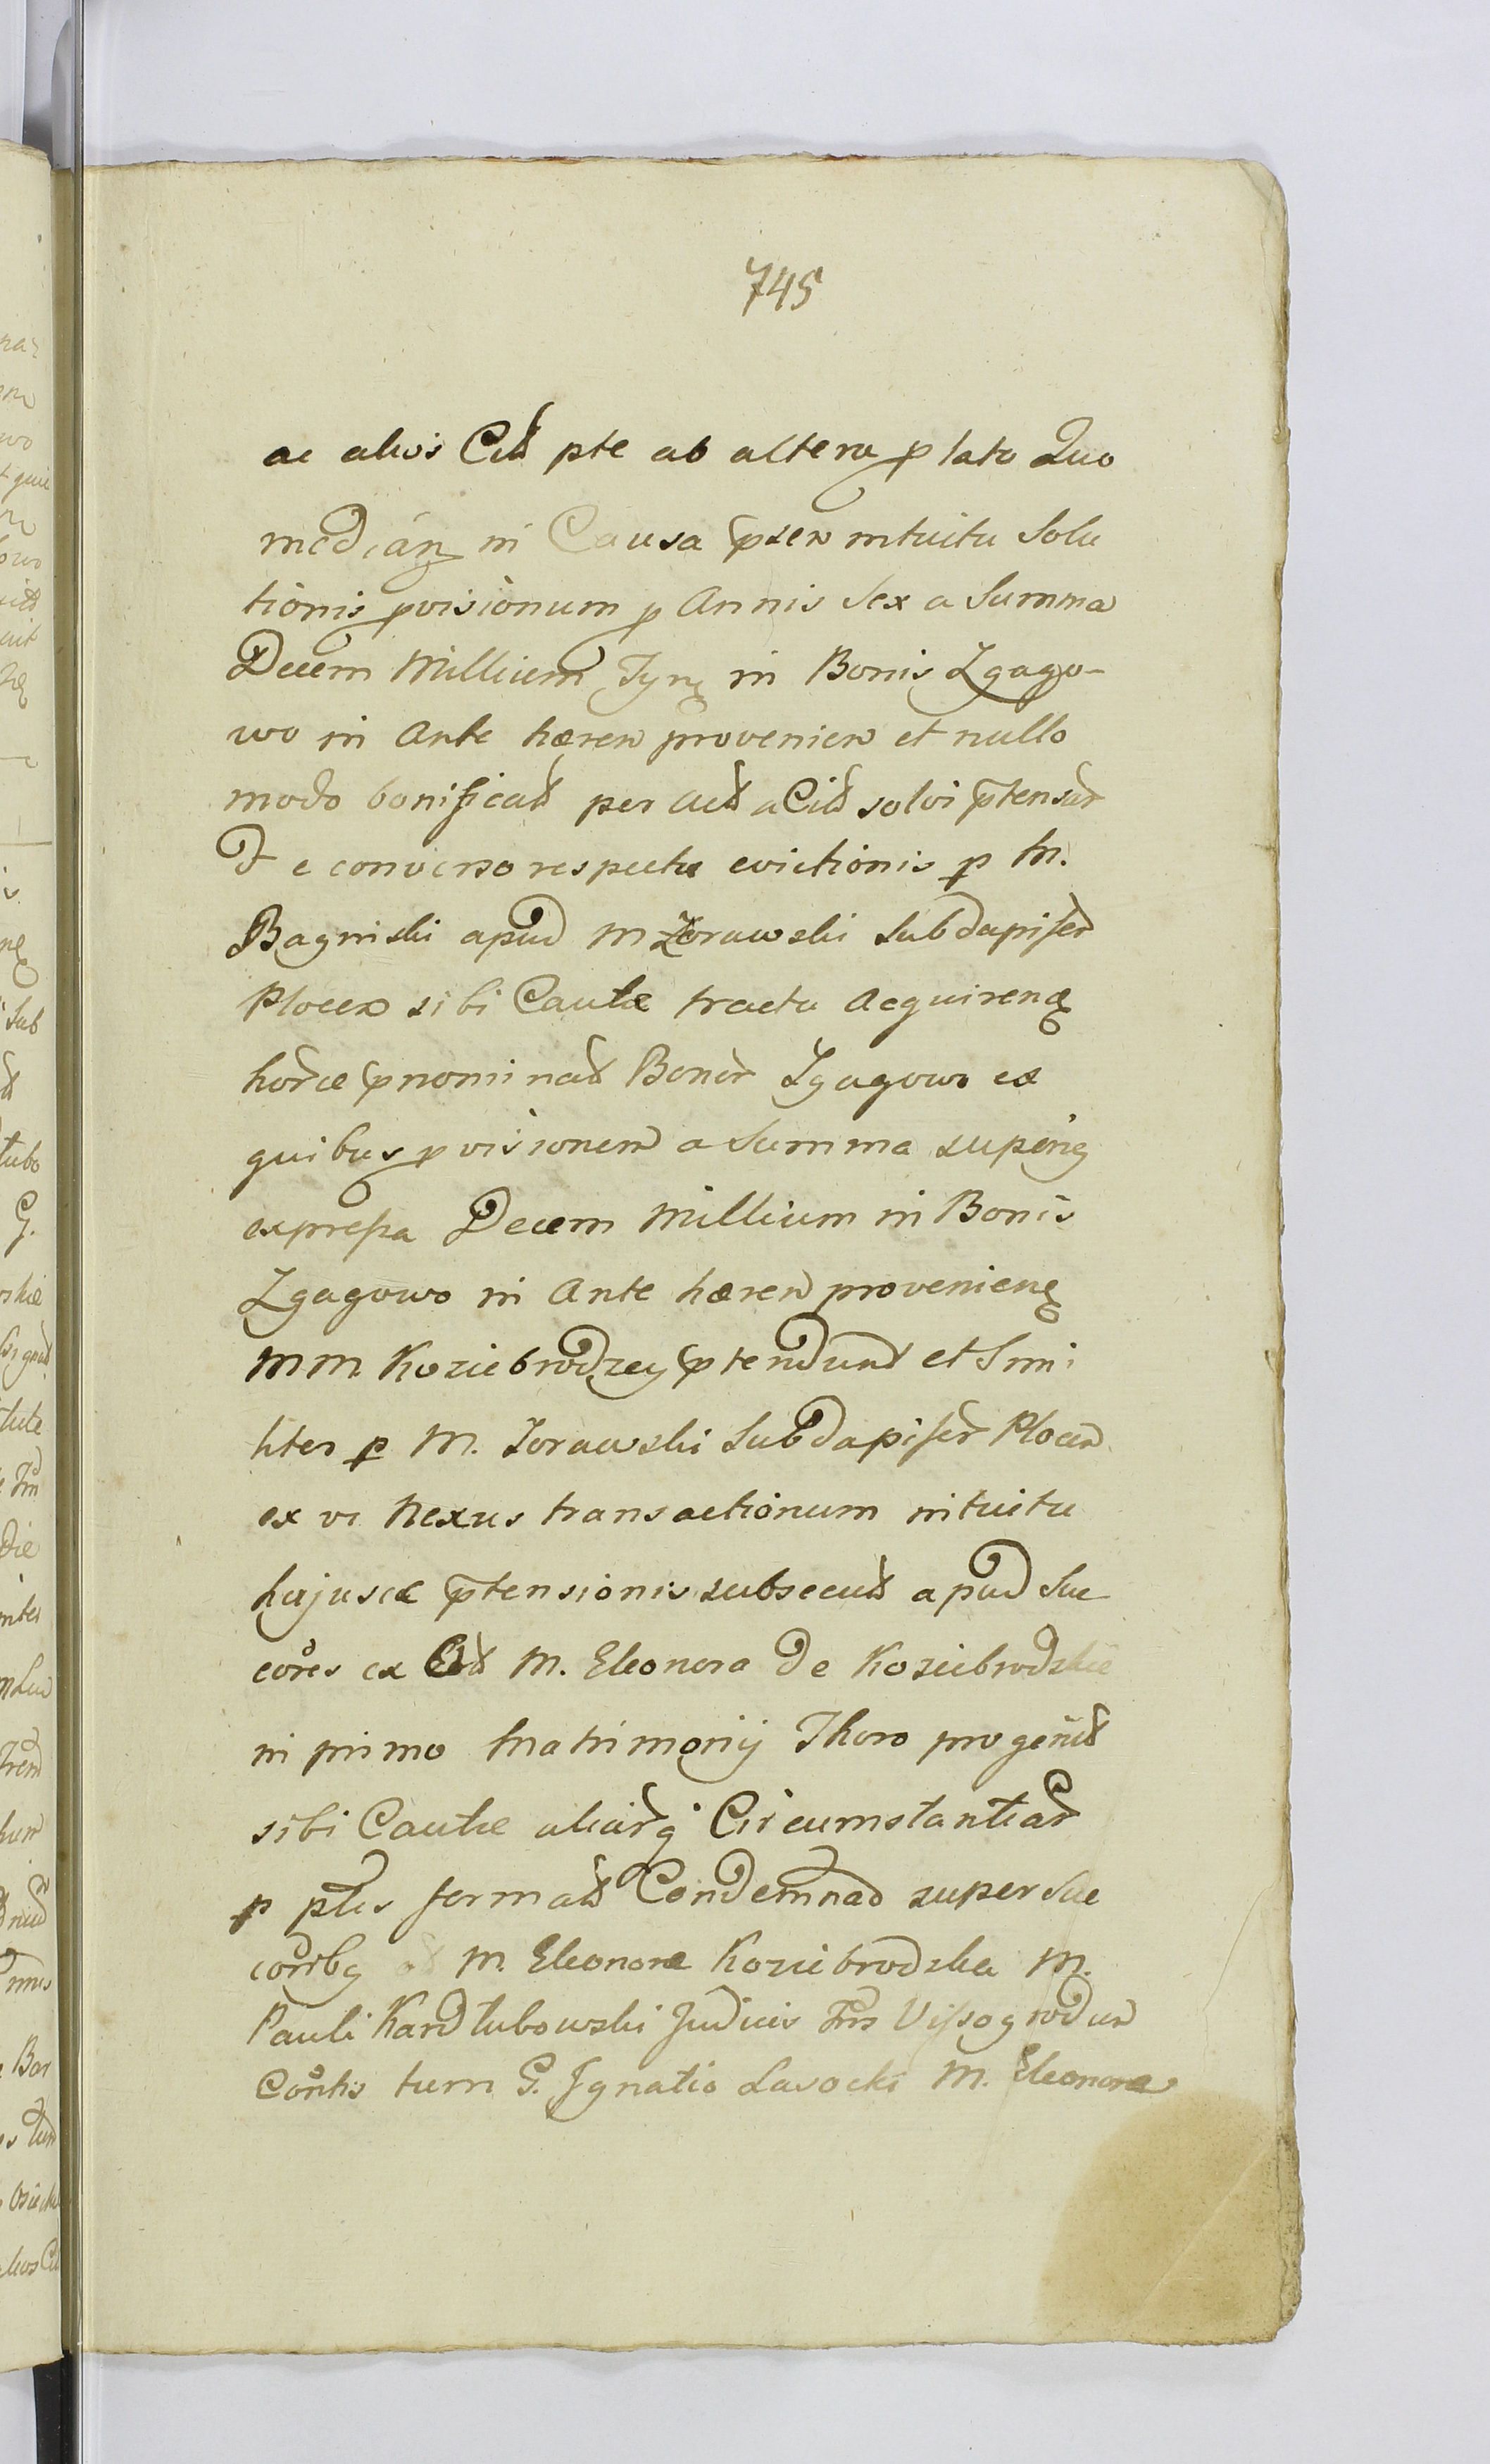 745
ac alios Citt pte ab altera p lato Quo
median in Causa psen intuitu Solu
tionis pvisionum p Annis Sex a Summa
Decem Millium Tyn in Bonis Zgago-
wo in Ante hæren provenien et nullo
modo bonificatt per Actt a Citt solvi ptensar
 e converso respectu evictionis p M.
Bagniski apud M Zorawski Subdapifer
Plocen sibi Cautæ tractu Acquiren
horce pnominatt Bonor Zgagowo ex
quibus pvisionem a Summa superiq
expressa Decem Millium in Bonis
Zgagowo in Ante hæren provenienq
MM Koziebrodzcy ptendunt et Simi
liter p M. Zorawski Subdapifer Plocen
ex vi Nexus transactionum intuitu
hujusce ptensionis subsecutt apud Suc
cores ex M. Eleonora de Koziebrodzkie
in primo Matrimonij Thoro progenit
sibi Cautæ aliarq Circumstantiar
p ptes formatt Condemnad super Suc
coribq M. Eleonoræ Koziebrodzka M.
Pauli Kardtubowski Judicis Tris Vissogroden
Contis tum G. Ignatio Lasocki M. Eleonora